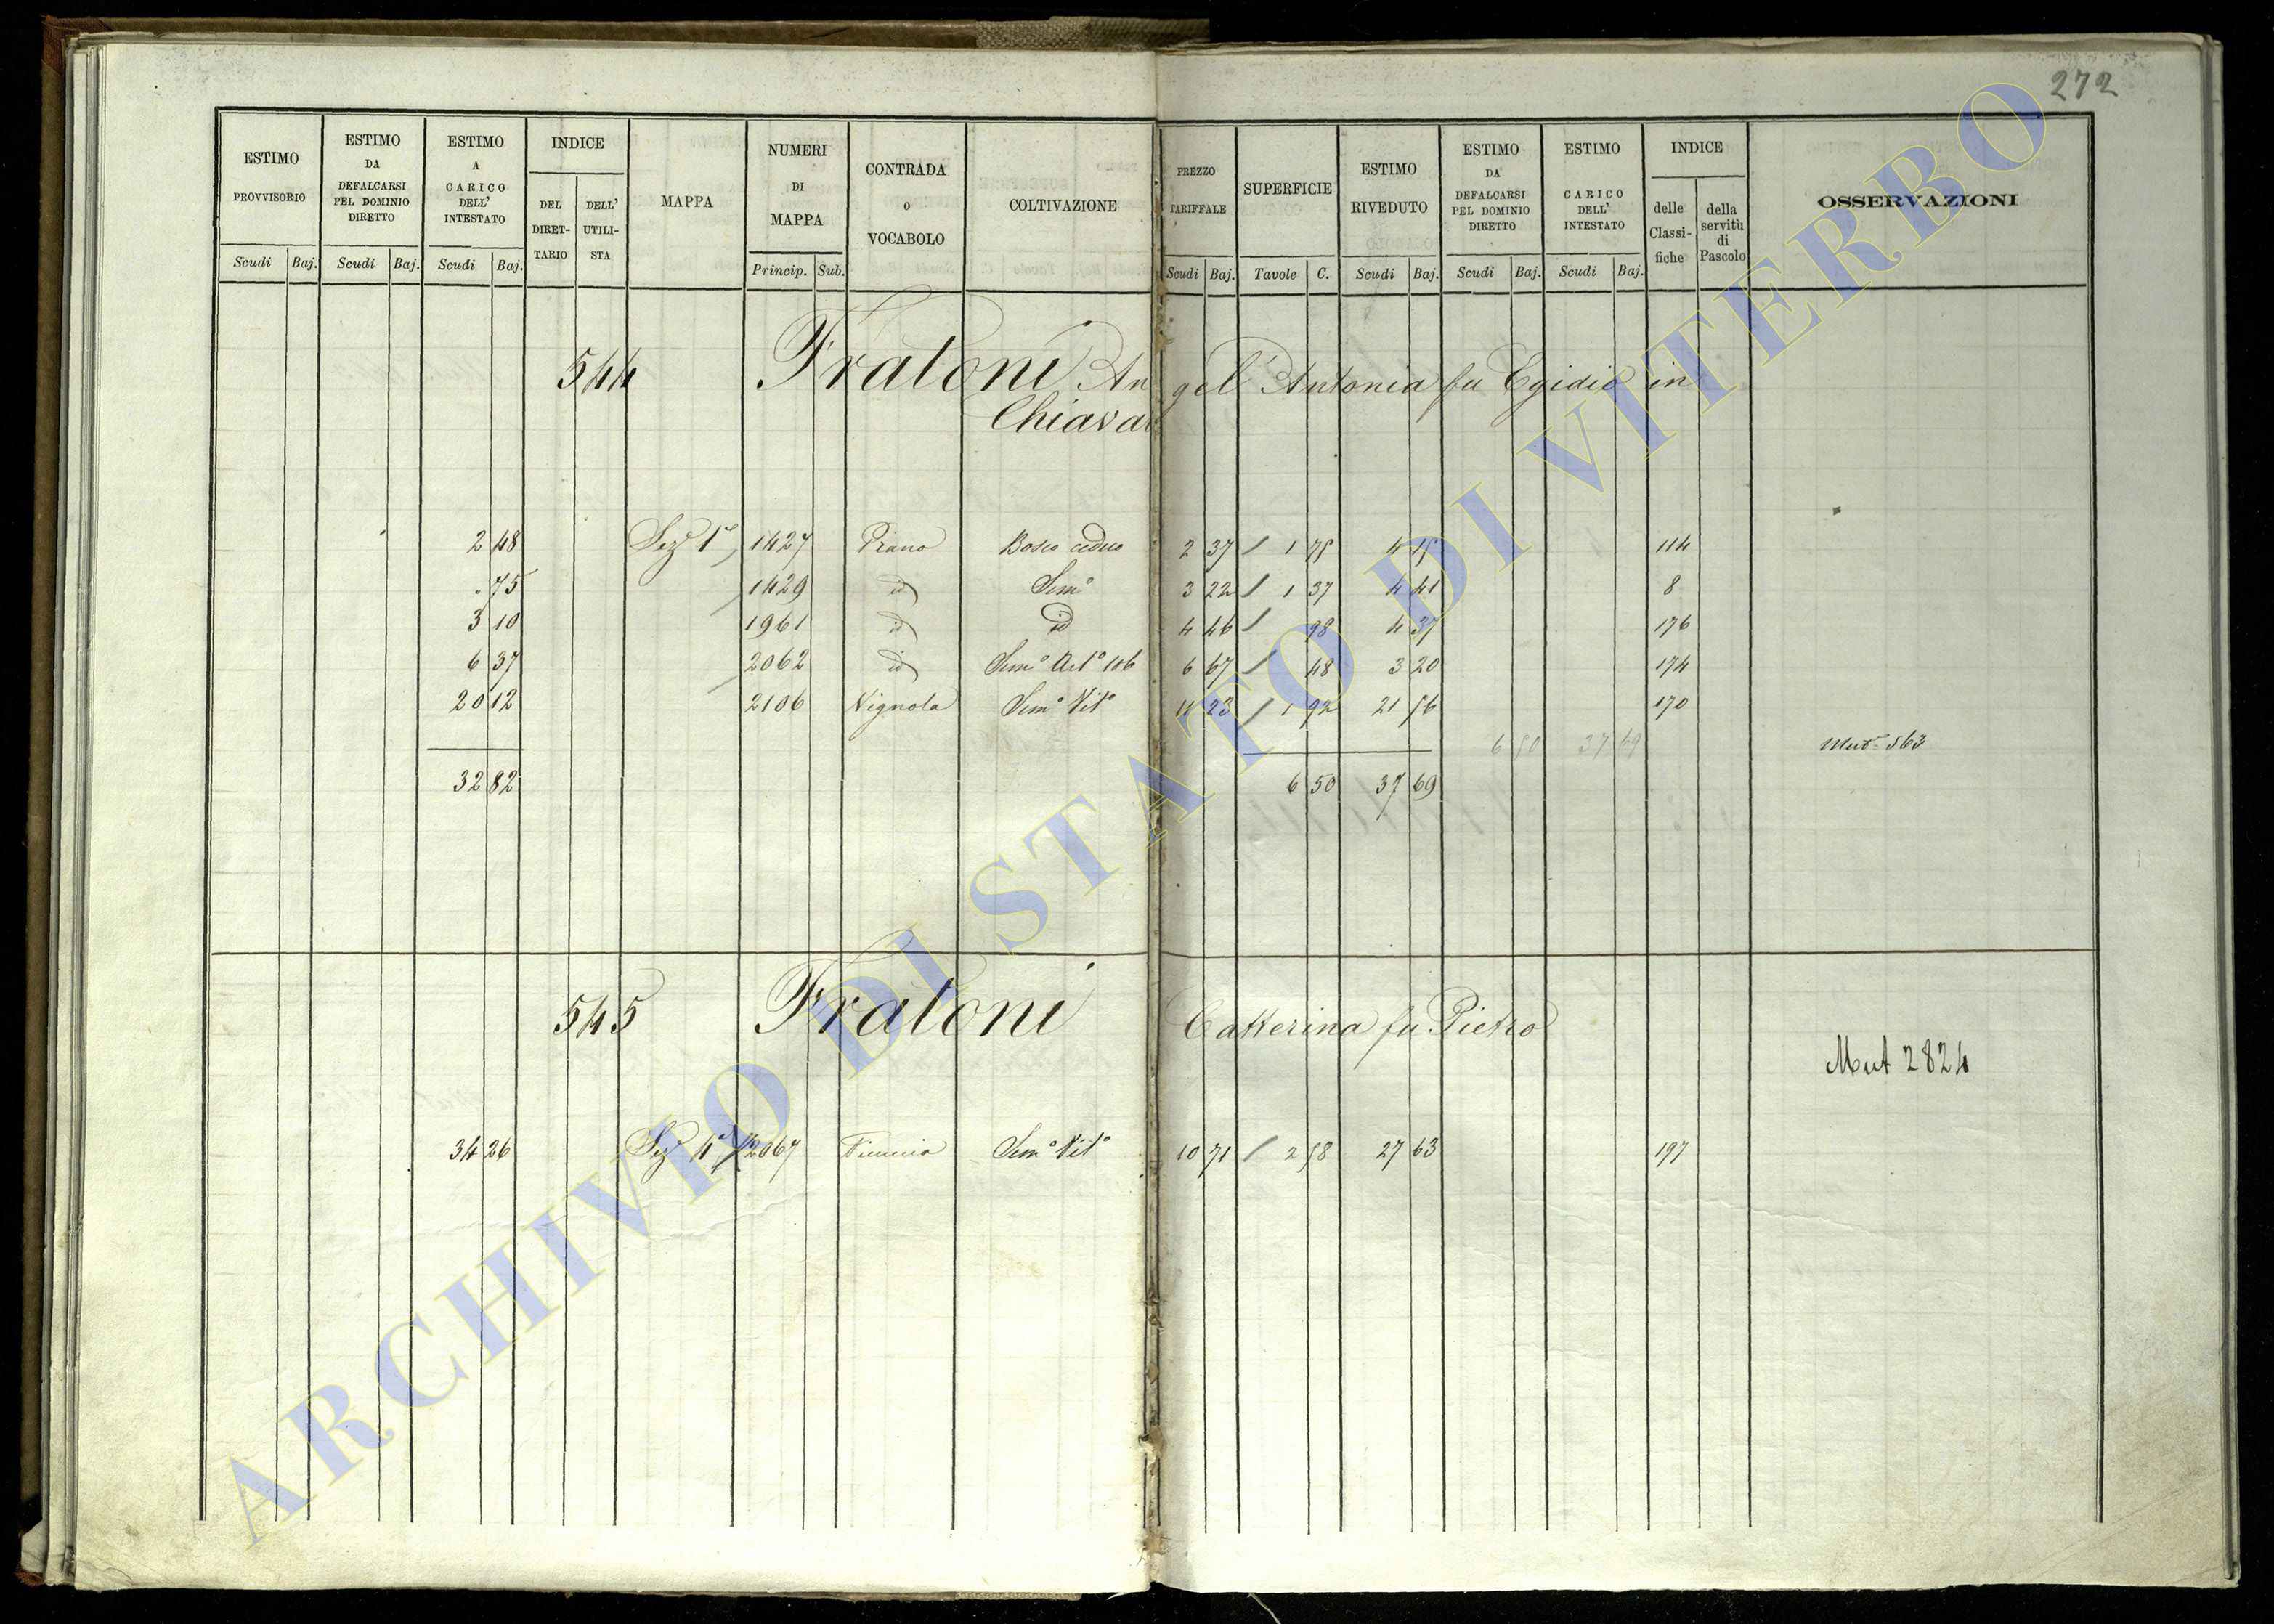 272
ESTIMO PROVVISORIO
ESTIMO DA DEFALCARSI PEL DOMINIO DIRETTO
ESTIMO A CARICO DELL' INTESTATO
INDICE
DEL DIRET-TARIO
DELL' UTILI-STA
MAPPA
NUMERI DI MAPPA
CONTRADA O VOCABOLO
COLTIVAZIONE
PREZZO TARIFFALE
SUPERFICIE
ESTIMO RIVEDUTO
ESTIMO DA DEFALCARSI PEL DOMINIO DIRETTO
ESTIMO CARICO DELL' INTESTATO
INDICE
delle Classi-fiche
della servitù di Pascolo
OSSERVAZIONI
Scudi Baj. Scudi Baj. Scudi Baj. Princip. Sub. Scudi Baj. Tavole C. Scudi Baj. Scudi Baj. Scudi Baj.
544 Fratoni Angel'Antonia fu Egidio in
Chiavar
2 48 Sez.e 1a 1427 Piano Bosco ceduo 2 37 1 75 4 15 114
. 75 1429 id Sem.o 3 22 1 37 4 41 8
3 10 1961 id id 4 46 98 4 37 176
6 37 2062 id Sem.o Art.o 106 6 67 48 3 20 174
20 12 2106 Vignola Sem.o Vit.o 11 23 1 92 21 56 170
6 50 37 69 Mut.e 563
32 82 6 50 37 69
545 Fratoni Catterina fu Pietro
Mut 2824
34 26 Sez 1a 2067 Sem.o Vit.o 10 71 2 58 27 63 197
ARCHIVIO DI STATO DI VITERBO